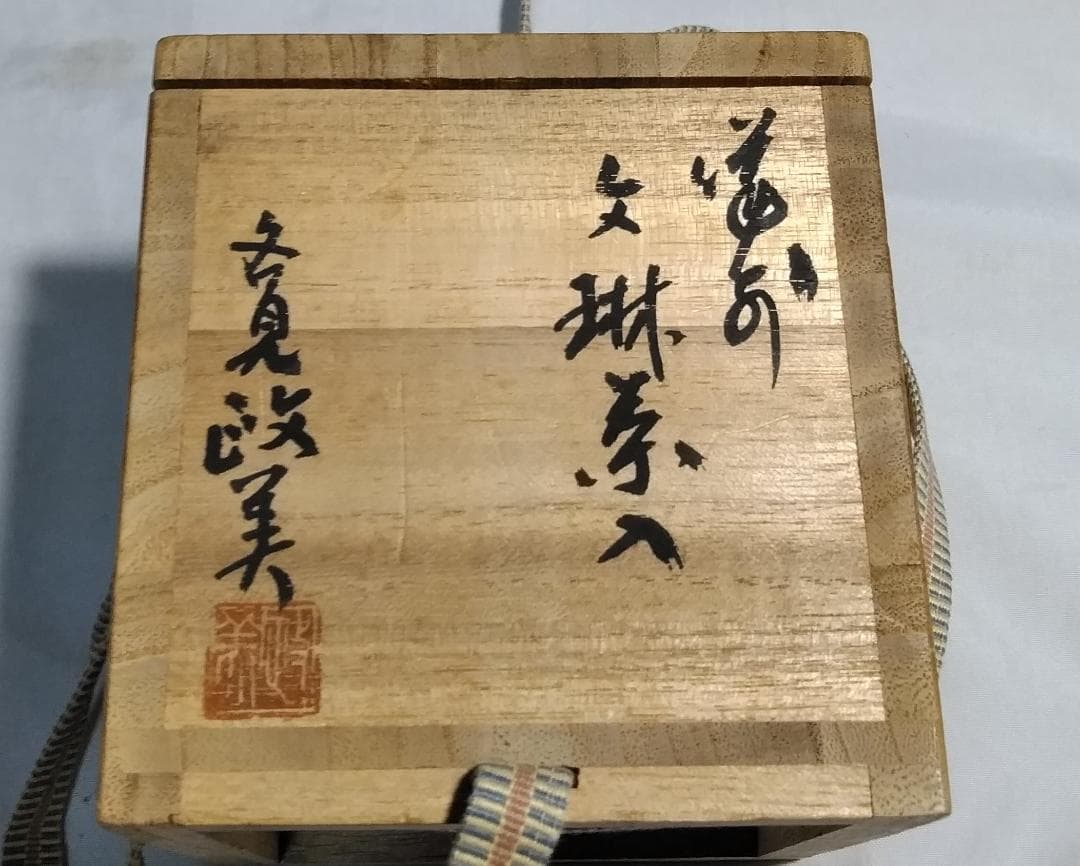 備前
文琳茶入
各見政美